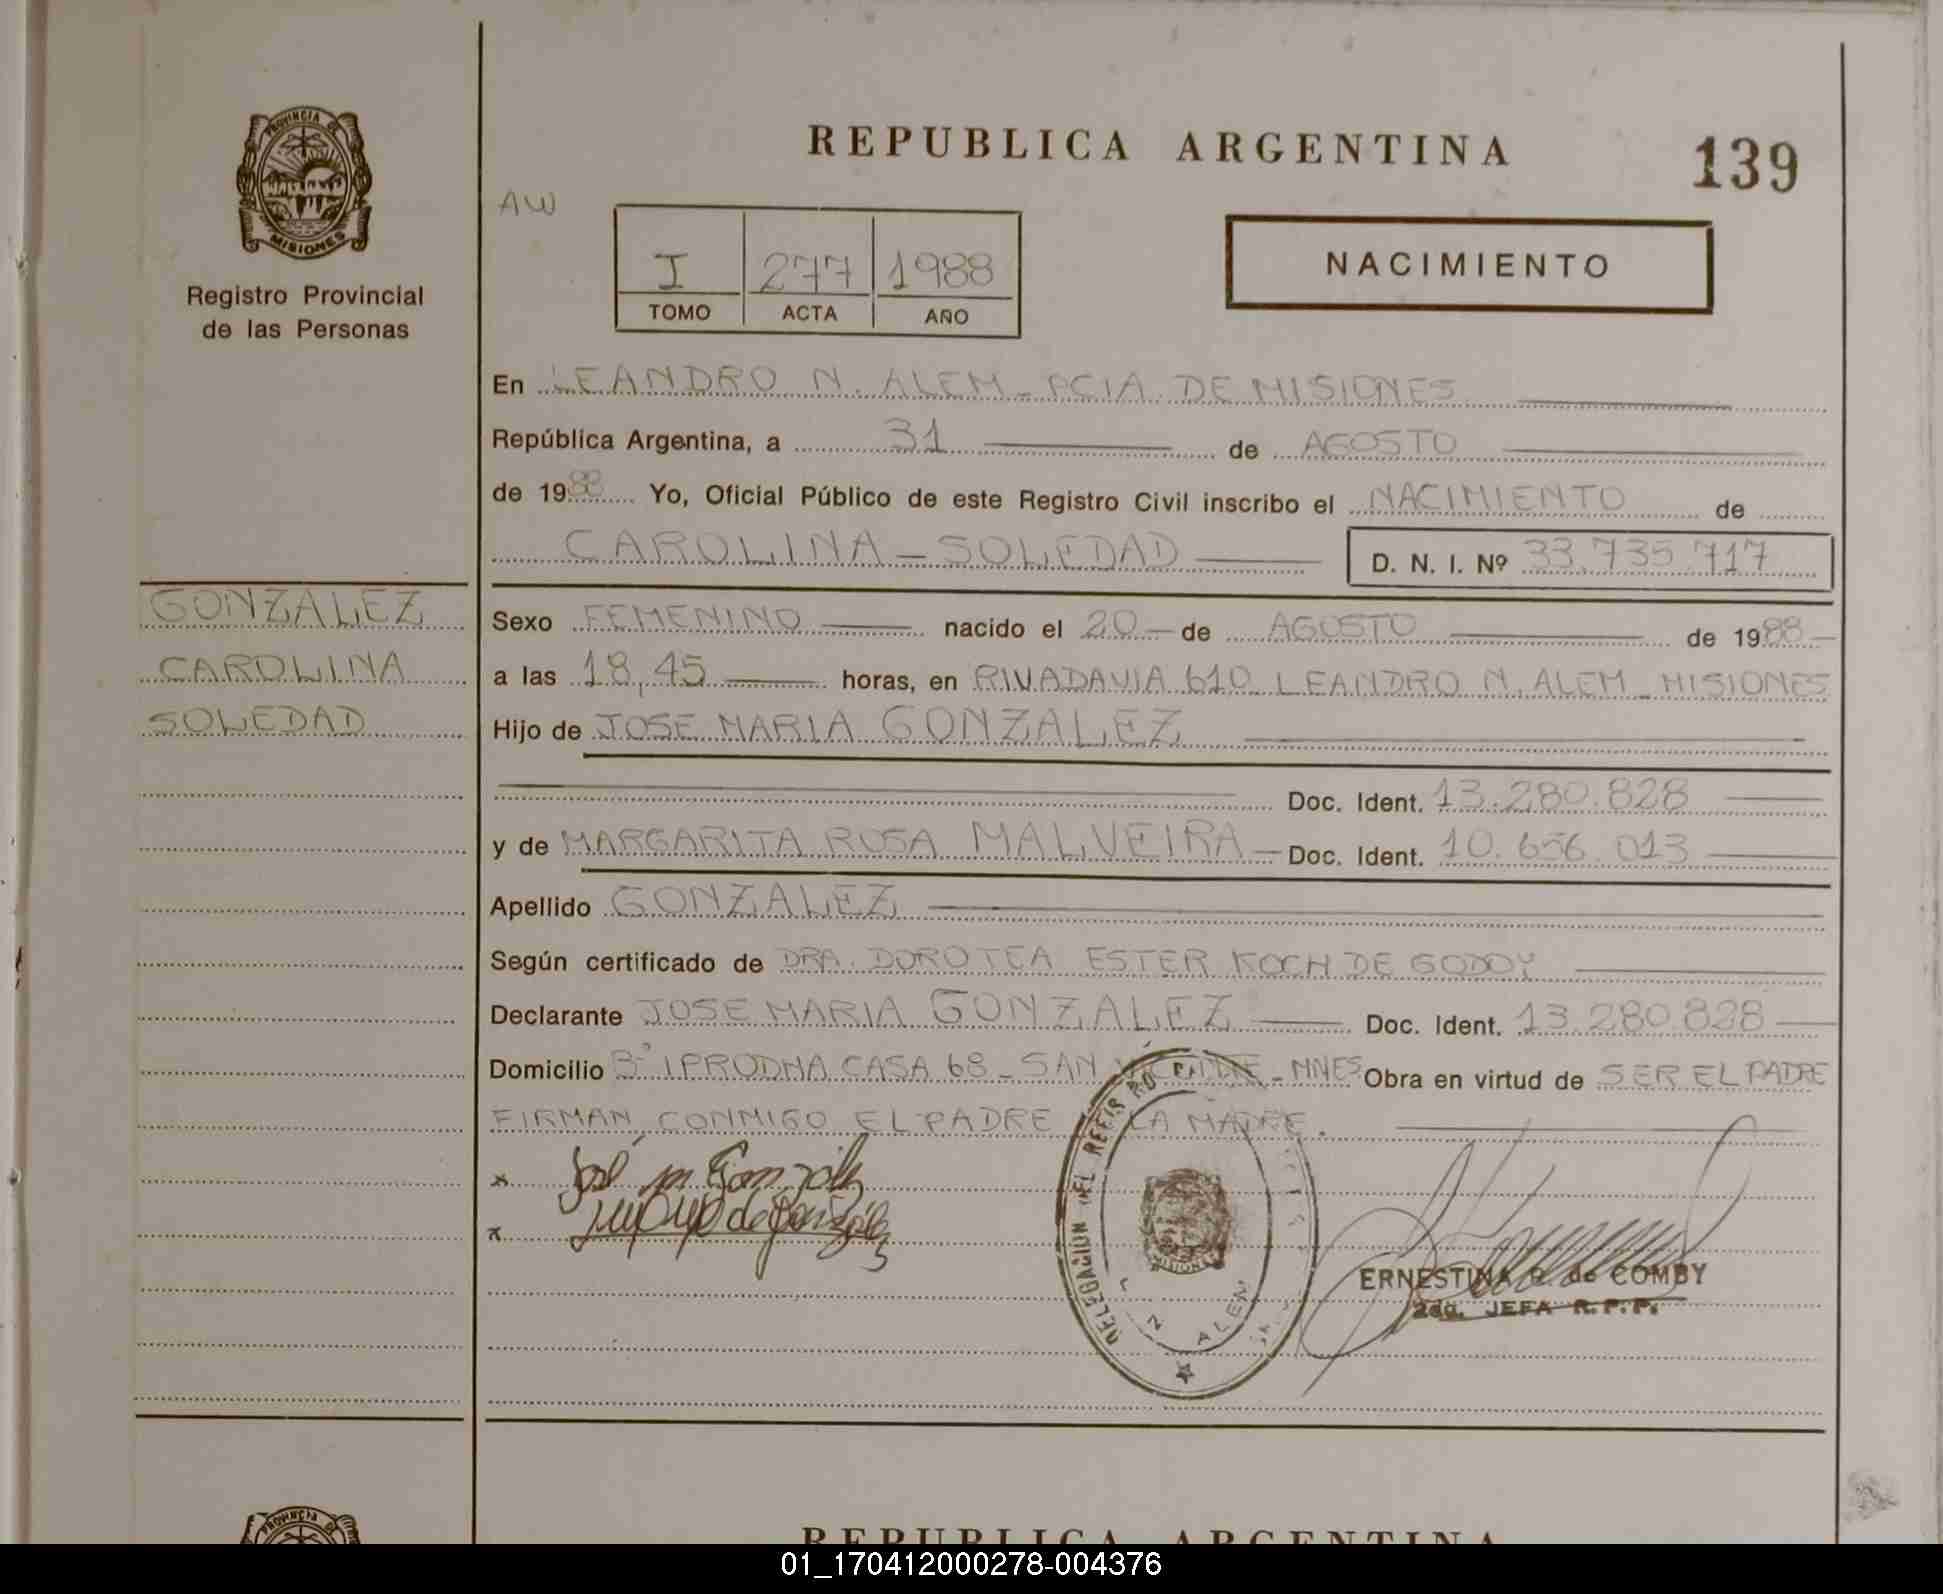 PROVINCIA DE
MISIONES
Registro Provincial
de las Personas
REPUBLICA ARGENTINA
139
AW
I 277 1988
TOMO ACTA AÑO
NACIMIENTO
En LEANDRO N. ALEM - PCIA. DE MISIONES
República Argentina, a 31 de AGOSTO
de 1988 Yo, Oficial Público de este Registro Civil inscribo el NACIMIENTO de
CAROLINA - SOLEDAD D. N. I. Nº 33.735.717
GONZALEZ
CAROLINA
SOLEDAD
Sexo FEMENINO nacido el 20 - de AGOSTO de 1988 -
a las 18,45 horas, en RIVADAVIA 610 LEANDRO N. ALEM - MISIONES
Hijo de JOSE MARIA GONZALEZ
Doc. Ident. 13.280.828
y de MARGARITA ROSA MALVEIRA - Doc. Ident. 10.656.013
Apellido GONZALEZ
Según certificado de DRA. DOROTEA ESTER KOCH DE GODOY
Declarante JOSE MARIA GONZALEZ Doc. Ident. 13.280.828
Domicilio Bº IPRODHA CASA 68 - SAN VICENTE - MNES Obra en virtud de SER EL PADRE
FIRMAN CONMIGO EL PADRE LA MADRE.
x José m Gonzalez
x de Gonzalez
DELEGACION DEL REGISTRO
MISIONES
L N ALEM
ERNESTINA R. de COMBY
2da. JEFA R.P.P.
PROVINCIA DE
REPUBLICA ARGENTINA
01_170412000278-004376